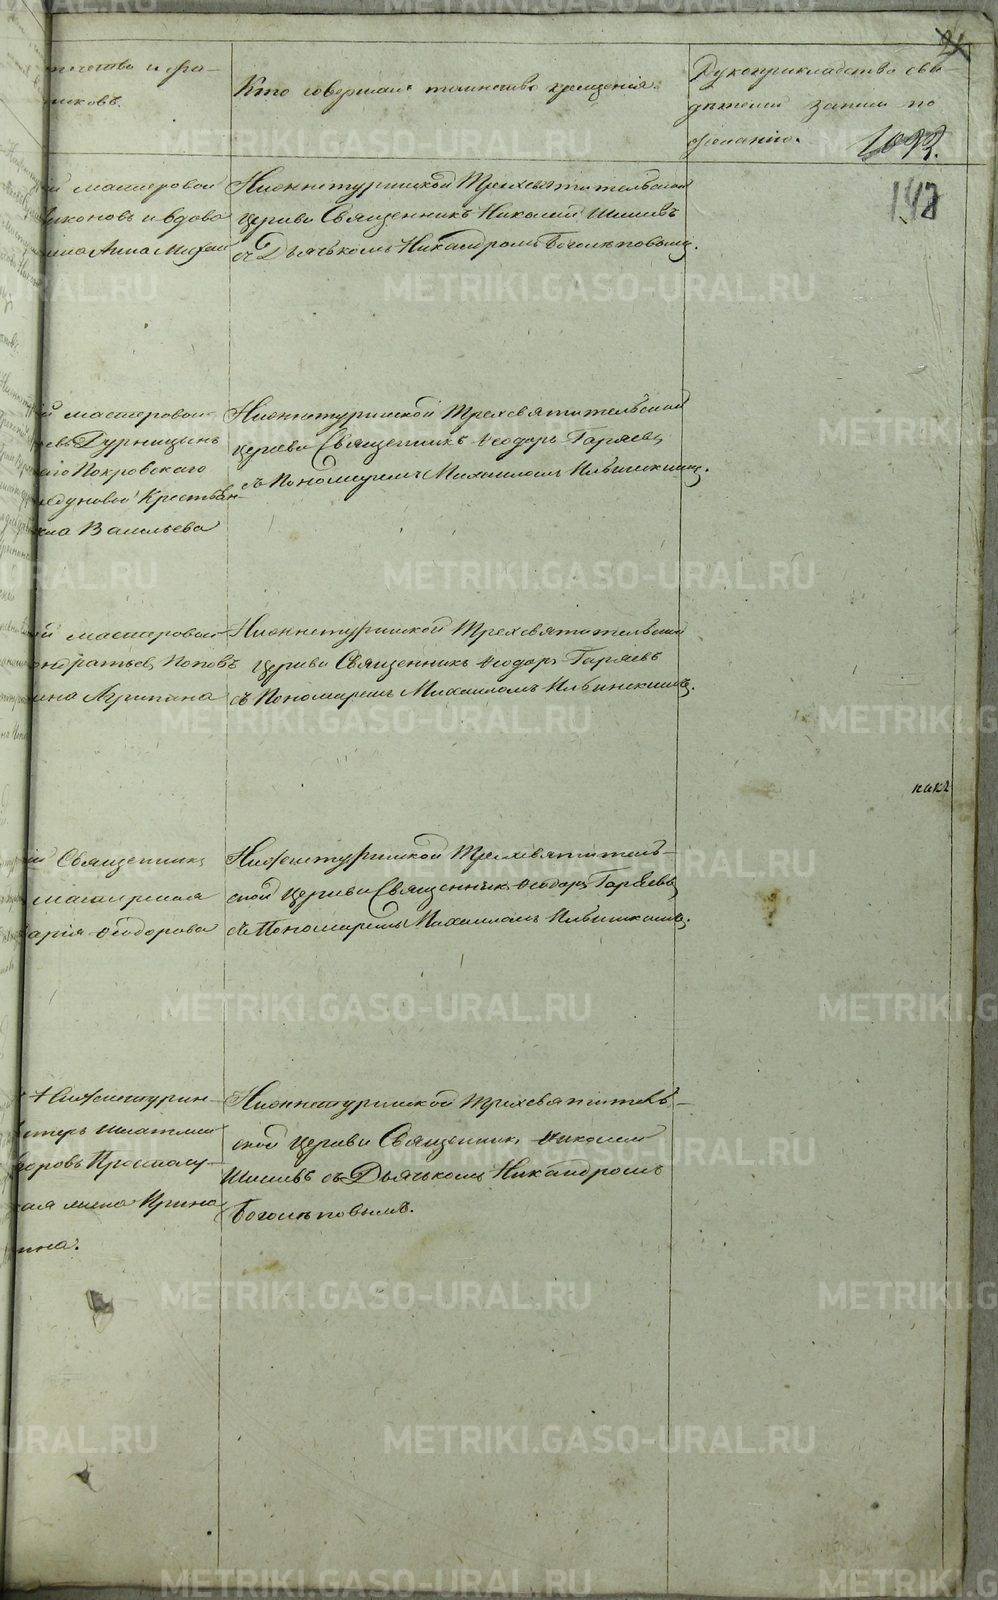 21
течество и фа-
милія воспрі-
никовъ.
Кто совершалъ таинство крещенія.
Рукоприкладство сви
дѣтелей записи по
желанію.
1093.
148
й мастеровой
иконовъ и вдова
Анна Михаи
Нижнетуринской Трехсвятительской
церкви Священникъ Николай Шишевъ
съ Дьячькомъ Никандромъ Боголѣповымъ.
й мастеровой
Дурницынъ
Покровскаго
Крестьян-
Васильева
Нижнетуринской Трехсвятительской
церкви Священникъ Ѳеодоръ Гаряевъ
съ Пономаремъ Михаиломъ Ильинскимъ.
й мастеровой
ондратьевъ Поповъ
Агрипина
Нижнетуринской Трехсвятительской
церкви Священникъ Ѳеодоръ Гаряевъ
съ Пономаремъ Михаиломъ Ильинскимъ.
накл
й Священникъ
арія Ѳеодорова
Нижнетуринской Трехсвятитель-
ской церкви Священникъ Ѳеодоръ Гаряевъ
съ Пономаремъ Михаиломъ Ильинскимъ.
Нижнетурин-
жена Ирина
Нижнетуринской Трехсвятитель-
ской церкви Священникъ Николай
Шишевъ съ Дьячькомъ Никандромъ
Боголѣповымъ.
METRIKI.GASO-URAL.RU